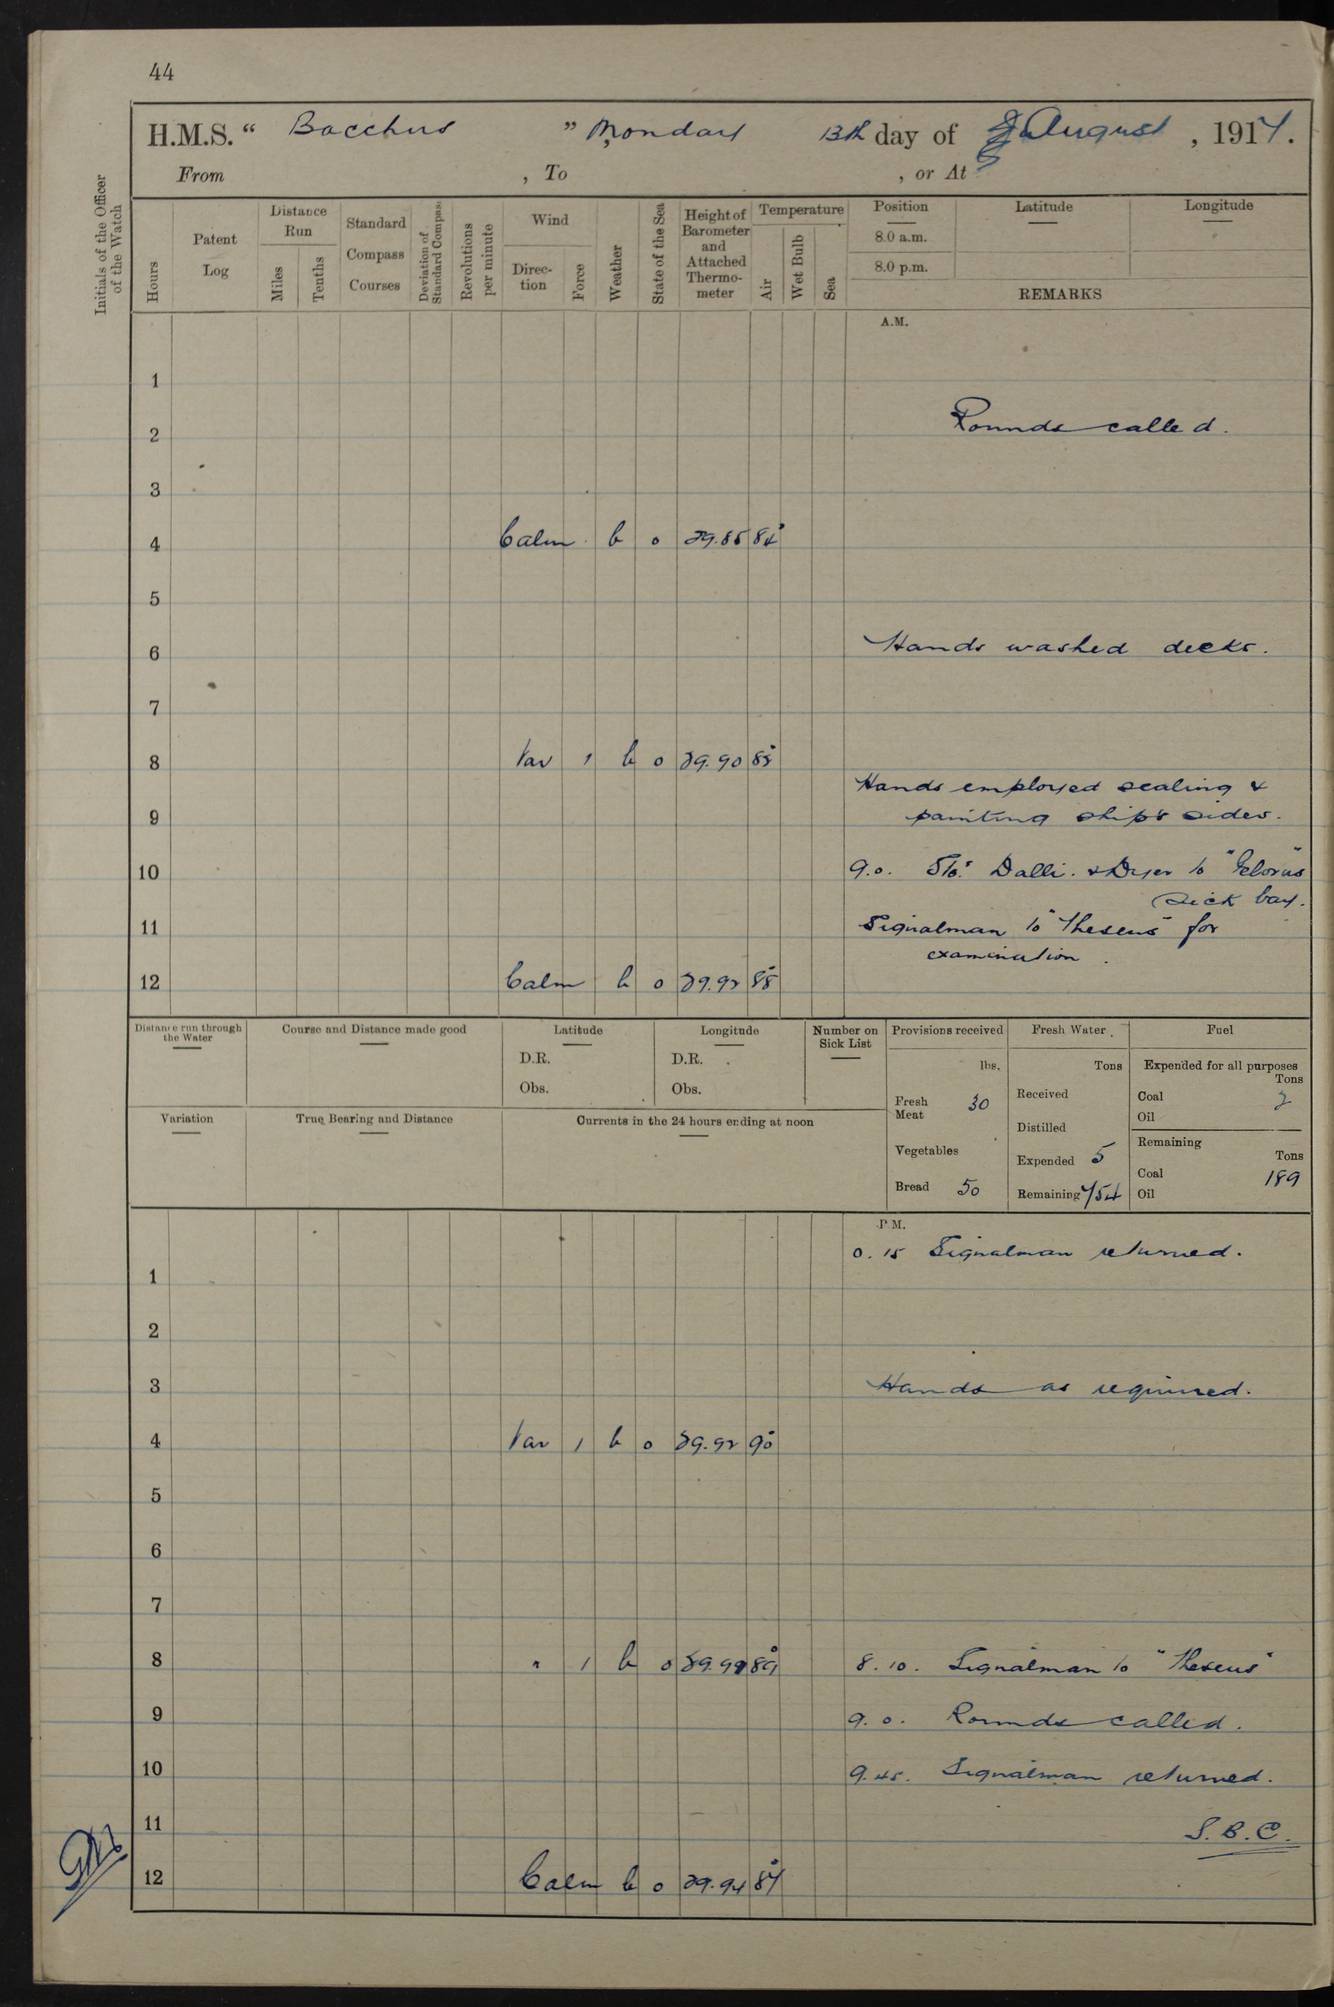 44
H.M.S. “ Bacchus ” , Monday 13th day of August , 1917.
From , To , or At
Initials of the Officer of the Watch
Hours
Patent Log
Distance Run
Miles
Tenths
Standard Compass Courses
Deviation of Standard Compass
Revolutions per minute
Wind
Direc- tion
Force
Weather
State of the Sea
Height of Barometer and Attached Thermo- meter
Temperature
Air
Wet Bulb
Sea
Position
8.0 a.m.
8.0 p.m.
Latitude
Longitude
REMARKS
A.M.
1
2 Rounds called.
3
4 Calm b o 29.85 84°
5
6 Hands washed decks.
7
8 Var 1 b o 29.90 85°
Hands employed scaling &
9 painting ship's sides.
10 9.0. Sto. Dalli. & Dyer to "Pelorus"
sick bay.
11 Signalman to "Theseus" for
examination.
12 Calm b o 29.92 88°
Distance run through the Water
Course and Distance made good
Latitude
D.R.
Obs.
Longitude
D.R.
Obs.
Number on Sick List
Provisions received
lbs.
Fresh Meat 30
Vegetables
Bread 50
Fresh Water
Tons
Received
Distilled
Expended 5
Remaining 754
Fuel
Expended for all purposes
Tons
Coal 2
Oil
Remaining
Tons
Coal 189
Oil
Variation
True Bearing and Distance
Currents in the 24 hours ending at noon
P.M.
0.15 Signalman returned.
1
2
3 Hands as required.
4 Var 1 b o 29.92 90°
5
6
7
8 " 1 b o 29.92 89° 8.10. Signalman to "Theseus"
9 9.0. Rounds called.
10 9.45. Signalman returned.
11 S.B.C.
12 Calm b o 29.94 87°